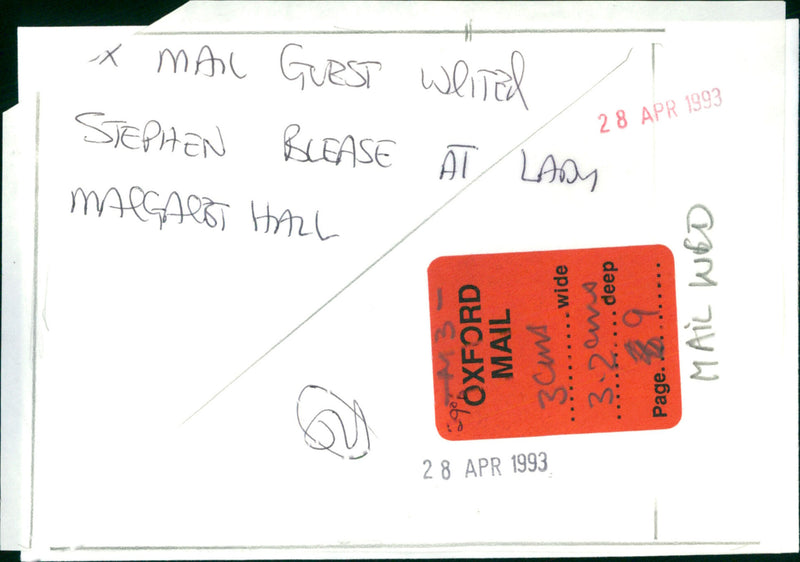 X MAIL GUEST WRITER
STEPHEN BLEASE AT LADY
MARGARET HALL
28 APR 1993
MAIL WED
OXFORD
MAIL
3cms wide
3.2cms deep
Page. 9
28 APR 1993